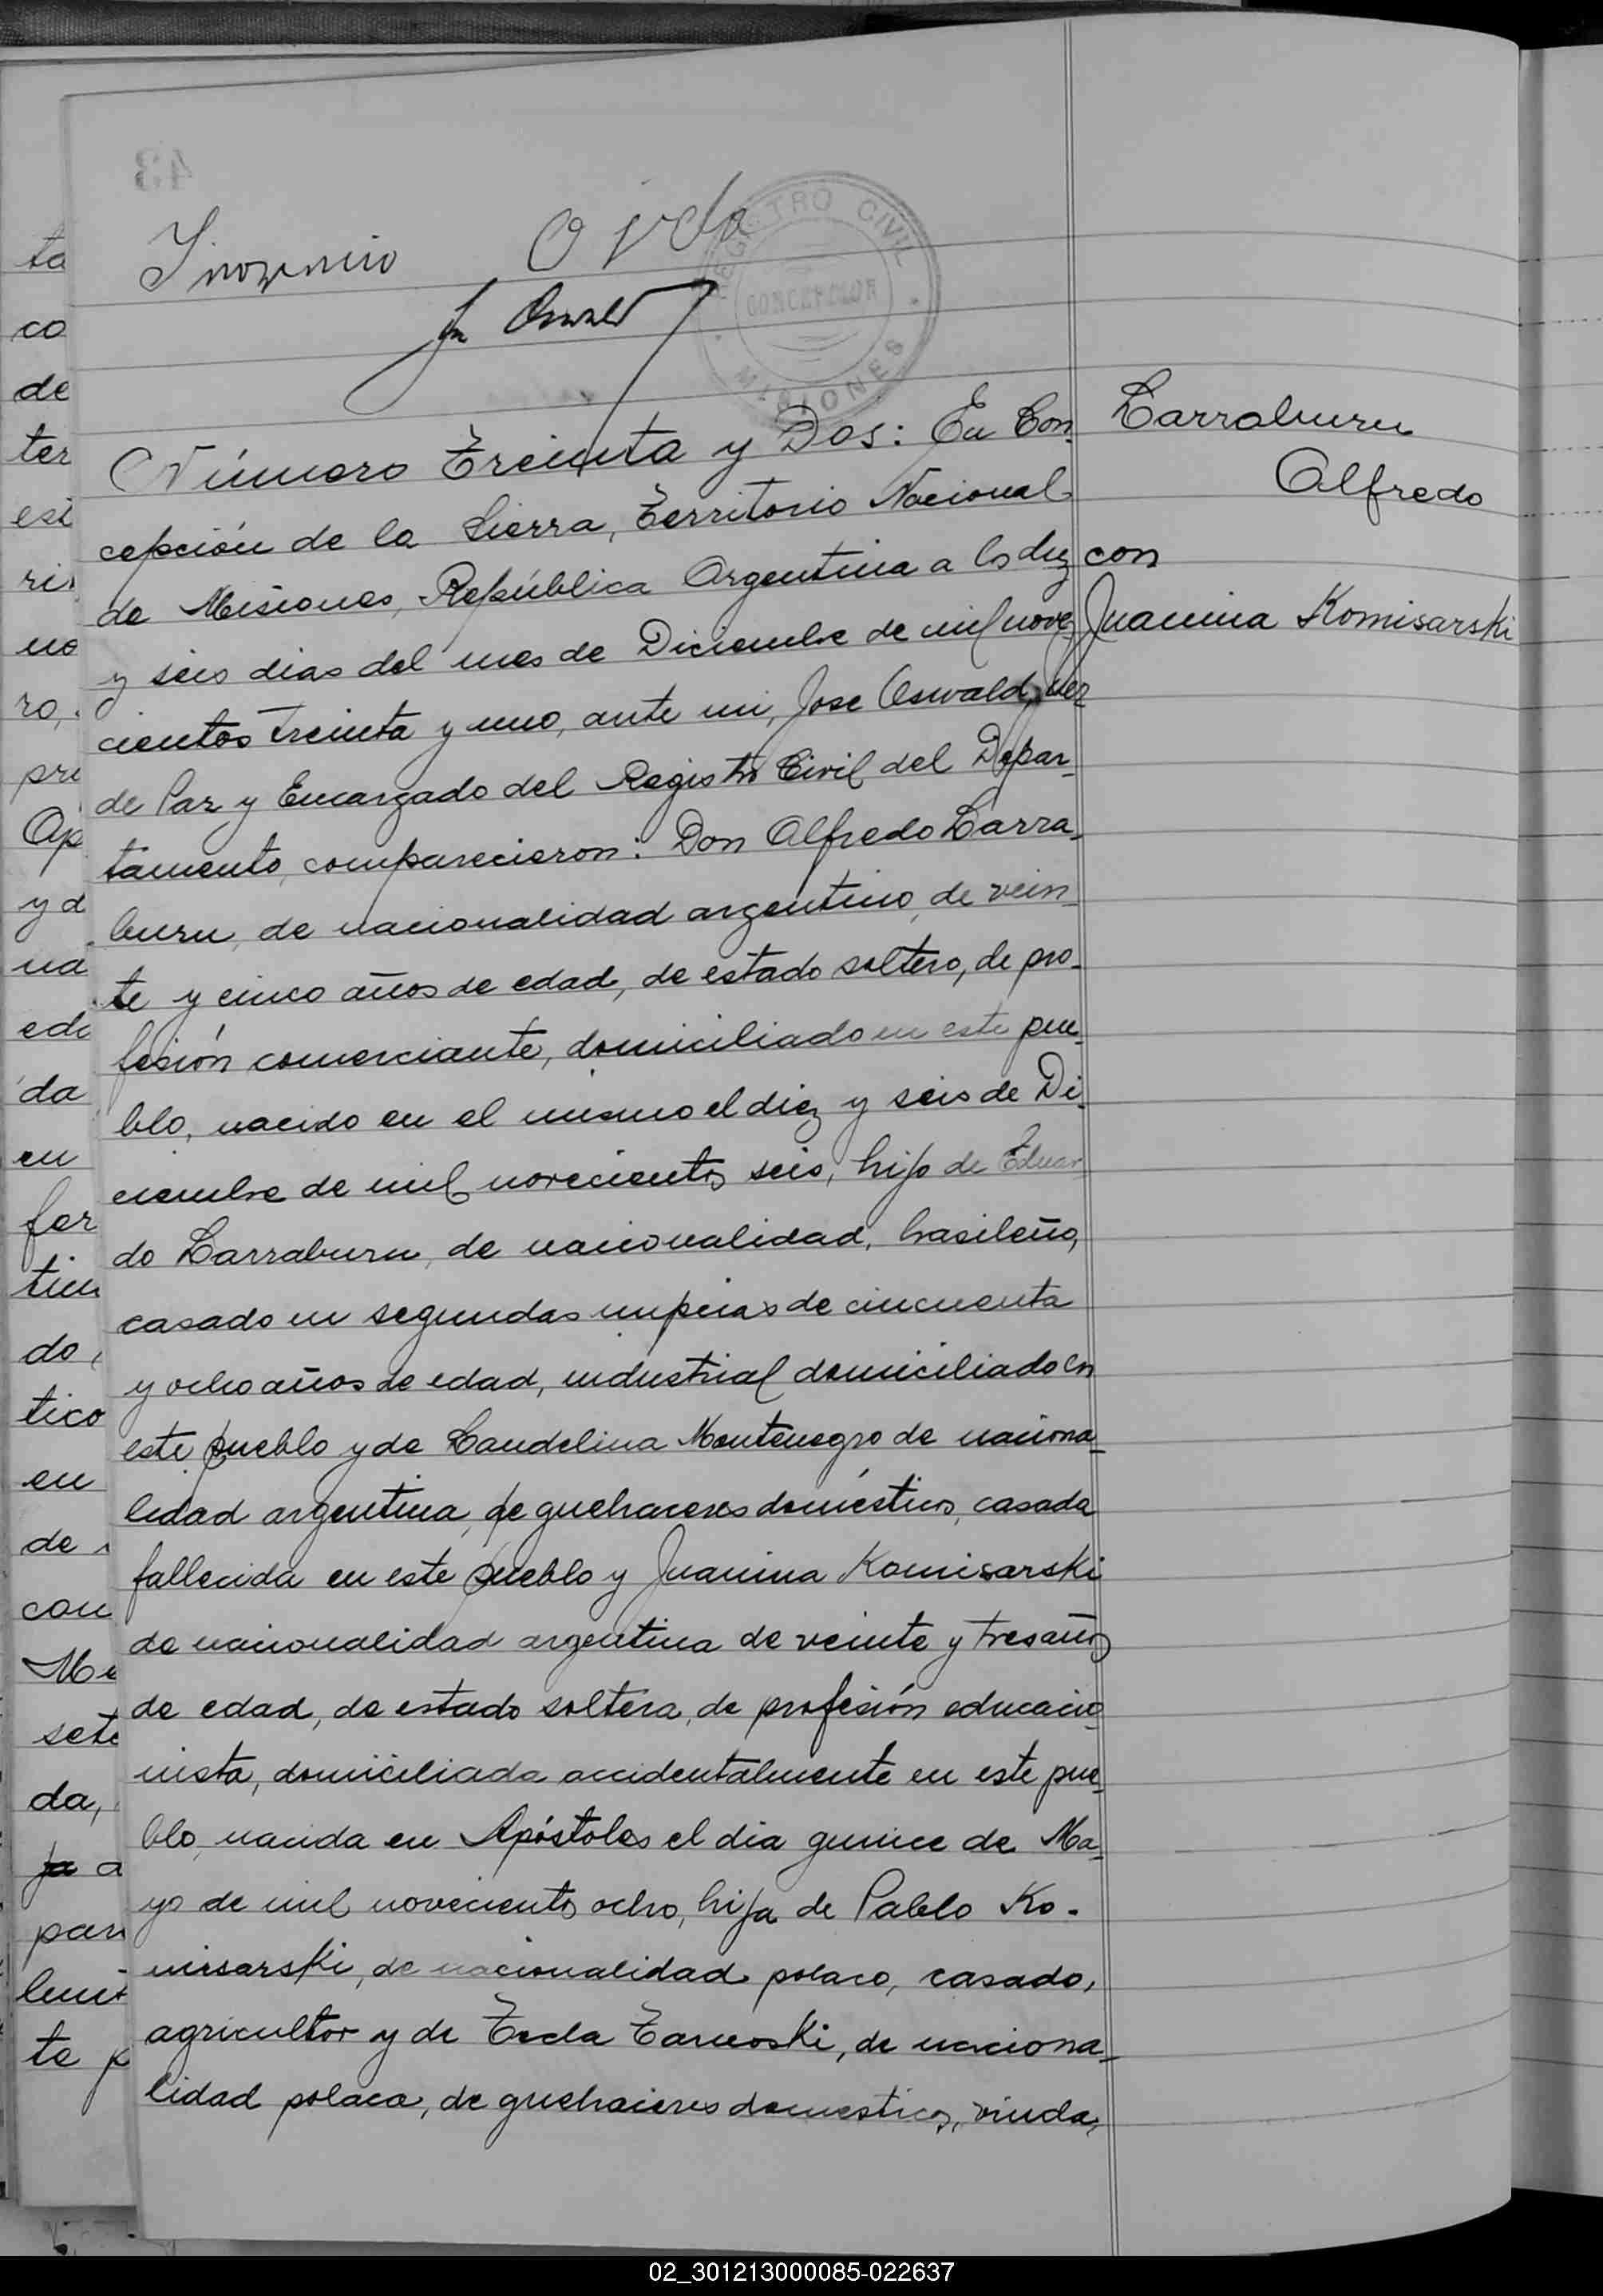 43
Oveda
J. Oswald
REGISTRO CIVIL
CONCEPCION
MISIONES
Número Treinta y Dos: En Con-
cepción de la Sierra, Territorio Nacional
de Misiones, República Argentina a los diez
y seis dias del mes de Diciembre de mil nove-
cientos treinta y uno, ante mi, Jose Oswald, Juez
de Paz y Encargado del Registro Civil del Depar-
tamento, comparecieron: Don Alfredo Larra-
buru, de nacionalidad argentino, de vein-
te y cinco años de edad, de estado soltero, de pro-
fesión comerciante, domiciliado en este pue-
blo, nacido en el mismo el diez y seis de Di-
ciembre de mil novecientos seis, hijo de Eduar-
do Larraburu, de nacionalidad, brasileño,
casado en segundas nupcias de cincuenta
y ocho años de edad, industrial domiciliado en
este pueblo y de Candelina Montenegro de naciona-
lidad argentina, de quehaceres domésticos, casada
fallecida en este pueblo y Juanina Komisarski
de nacionalidad argentina de veinte y tres años
de edad, de estado soltera, de profesión educacio-
nista, domiciliada accidentalmente en este pue-
blo, nacida en Apóstoles el dia quince de Ma-
yo de mil novecientos ocho, hija de Pablo Ko-
misarski, de nacionalidad polaco, casado,
agricultor y de Tecla Tarnoski, de naciona-
lidad polaca, de quehaceres domesticos, viuda,
Larraburu
Alfredo
con
Juanina Komisarski
ta
co
de
ter
est
ri
no
ro,
pri
Ap
y d
na
edo
da
en
fer
tin
do
tico
en
de
con
Me
sete
da,
ja a
par
te p
02_301213000085-022637